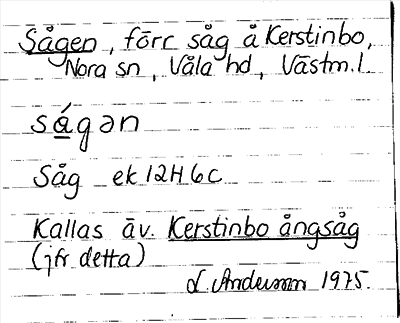 Sågen, förc såg å Kerstinbo,
Nora sn, Våla hd, Västm. l.
ságən
Såg ek 12H6c
Kallas äv. Kerstinbo ångsåg
(jfr detta)
L. Andersson 1975.